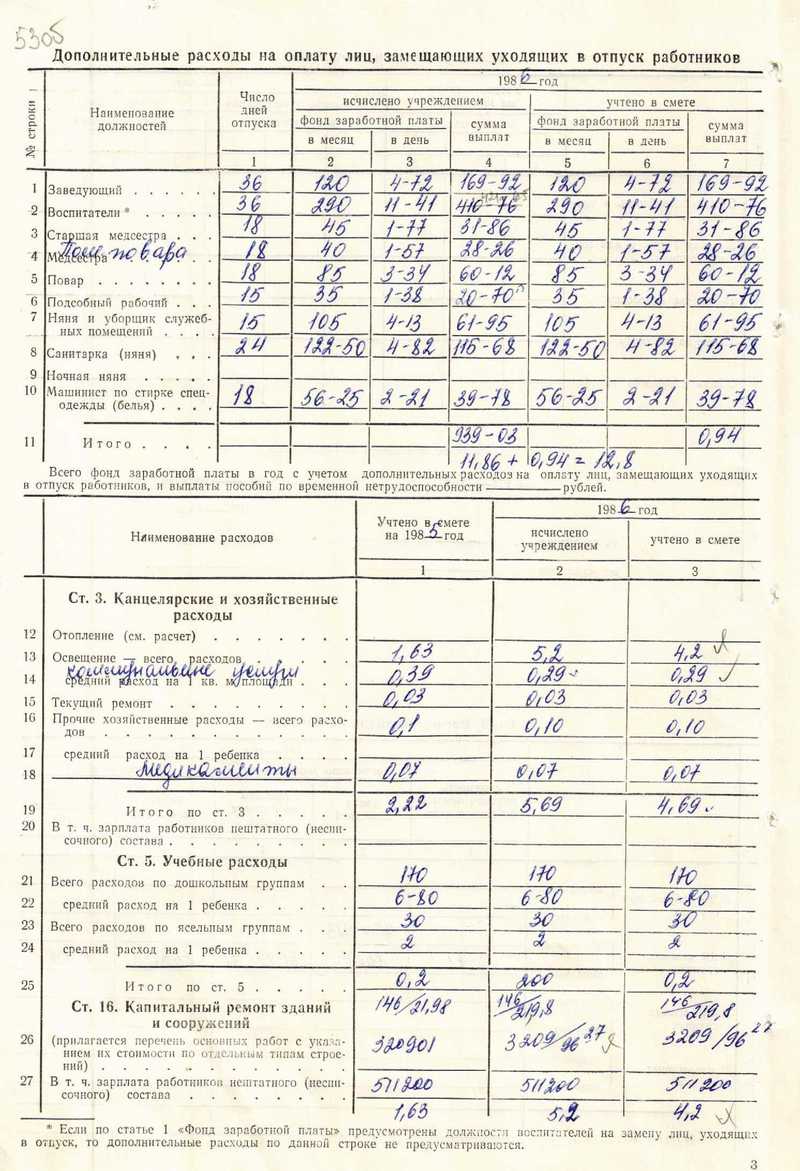 5305
Дополнительные расходы на оплату лиц, замещающих уходящих в отпуск работников
№ строки
Наименование должностей
Число дней отпуска
1986 год
исчислено учреждением
учтено в смете
фонд заработной платы
сумма выплат
фонд заработной платы
сумма выплат
в месяц в день в месяц в день
1 2 3 4 5 6 7
1 Заведующий . . . . . . 36 120 4-72 169-92 120 4-72 169-92
2 Воспитатели * . . . . . 36 290 11-41 410-76 290 11-41 410-76
3 Старшая медсестра . . . 18 45 1-77 31-86 45 1-77 31-86
4 Медсестра Пом. повара . . 18 40 1-57 28-26 40 1-57 28-26
5 Повар . . . . . . . 18 85 3-34 60-12 85 3-34 60-12
6 Подсобный рабочий . . . 15 35 1-38 20-70 35 1-38 20-70
7 Няня и уборщик служеб-
ных помещений . . . . 15 105 4-13 61-95 105 4-13 61-95
8 Санитарка (няня) . . . 24 122-50 4-82 115-68 122-50 4-82 115-68
9 Ночная няня . . . . .
10 Машинист по стирке спец-
одежды (белья) . . . . 18 56-25 2-21 39-78 56-25 2-21 39-78
11 Итого . . . . 939-03 0,94
11,86 + 0,94 = 12,8
Всего фонд заработной платы в год с учетом дополнительных расходов на оплату лиц, замещающих уходящих
в отпуск работников, и выплаты пособий по временной нетрудоспособности рублей.
Наименование расходов
Учтено в смете на 1985 год
1986 год
исчислено учреждением
учтено в смете
1 2 3
Ст. 3. Канцелярские и хозяйственные
расходы
12 Отопление (см. расчет) . . . . . . .
13 Освещение — всего расходов . . . . . 1,63 5,2 4,2
коммунальные услуги
14 средний расход на 1 кв. м площади . . . 0,39 0,29 0,29
15 Текущий ремонт . . . . . . . . . 0,03 0,03 0,03
16 Прочие хозяйственные расходы — всего расхо-
дов . . . . . . . . . . . . 0,1 0,10 0,10
17 средний расход на 1 ребенка . . . .
18 Медикаменты 0,07 0,07 0,07
19 Итого по ст. 3 . . . . . 2,22 5,69 4,69
20 В т. ч. зарплата работников нештатного (неспи-
сочного) состава . . . . . . . . .
Ст. 5. Учебные расходы
21 Всего расходов по дошкольным группам . . 170 170 170
22 средний расход на 1 ребенка . . . . . 6-80 6-80 6-80
23 Всего расходов по ясельным группам . . . 30 30 30
24 средний расход на 1 ребенка . . . . . 2 2 2
25 Итого по ст. 5 . . . . . 0,2 200 0,2
Ст. 16. Капитальный ремонт зданий
и сооружений
146/21,98 146/219,8 146/219,8
26 (прилагается перечень основных работ с указа-
нием их стоимости по отдельным типам строе-
ний) . . . . . . . . . . . . 320901 3209/96 27 3209/96 27
27 В т. ч. зарплата работников нештатного (неспи-
сочного) состава . . . . . . . . 511200 511200 511200
1,63 5,2 4,2
* Если по статье 1 «Фонд заработной платы» предусмотрены должности воспитателей на замену лиц, уходящих
в отпуск, то дополнительные расходы по данной строке не предусматриваются.
3